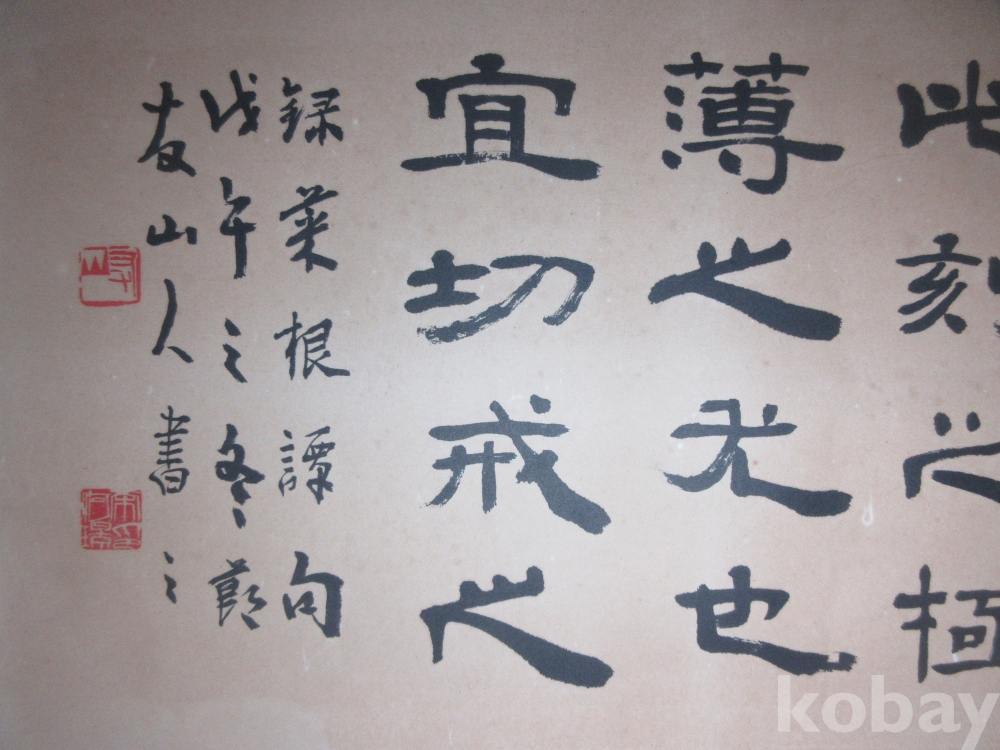 此刻之極
薄之尤也
宜切戒之
録菜根譚句
戊午之冬節
友山人書之
kobay